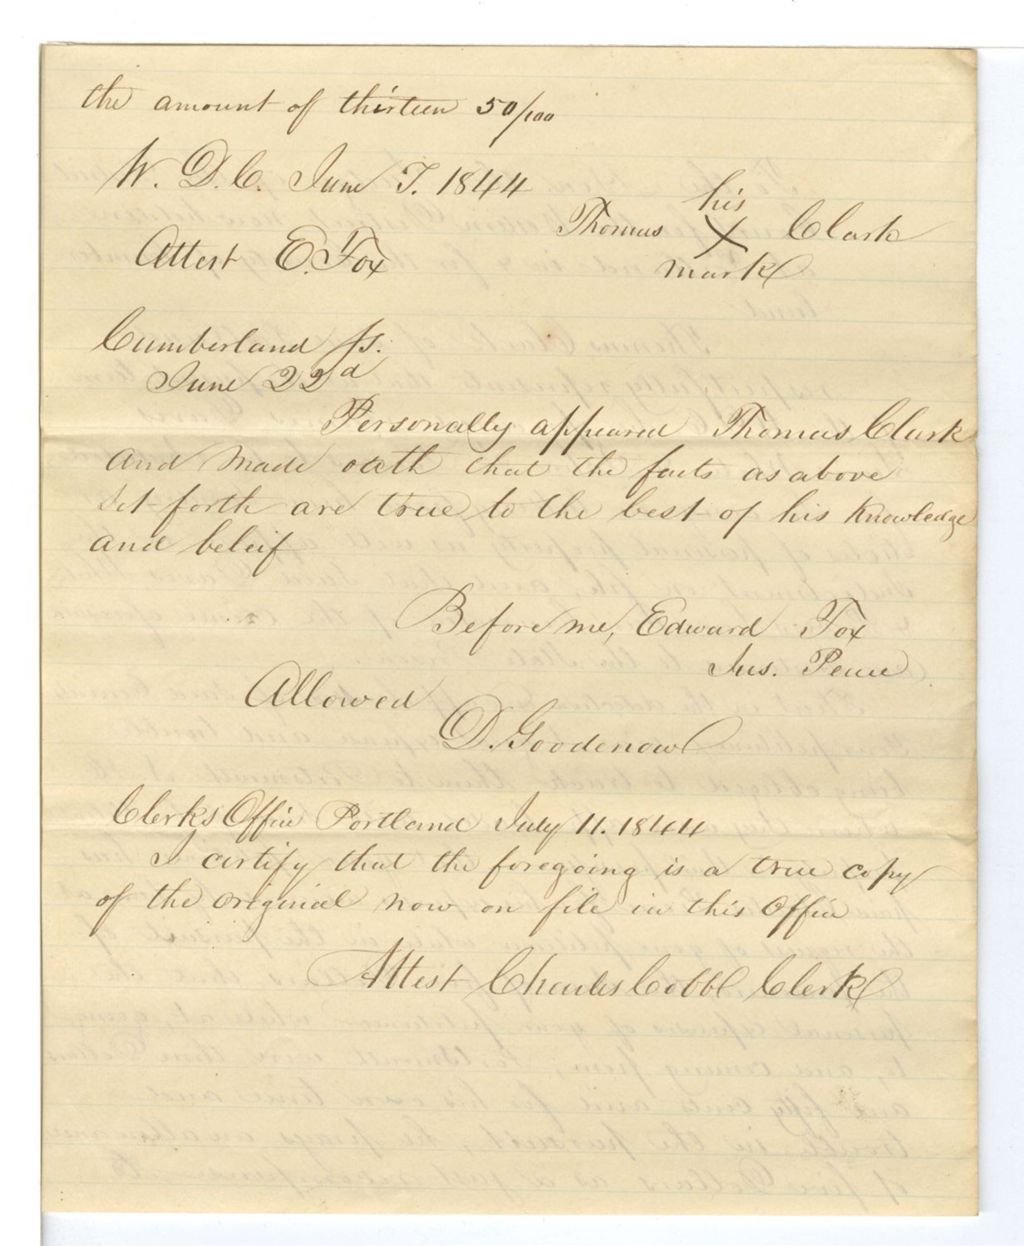 the amount of thirteen 50/100
W. D. C. June T. 1844
his
Thomas X Clark
mark
Attest E. Fox
Cumberland Ss.
June 22d
Personally appeared Thomas Clark
and made oath that the facts as above
set forth are true to the best of his knowledge
and beleif
Before me, Edward Fox
Jus. Peace
Allowed
D. Goodenow
Clerks Office Portland July 11. 1844
I certify that the foregoing is a true copy
of the original now on file in this Office
Attest Charles Cobb Clerk